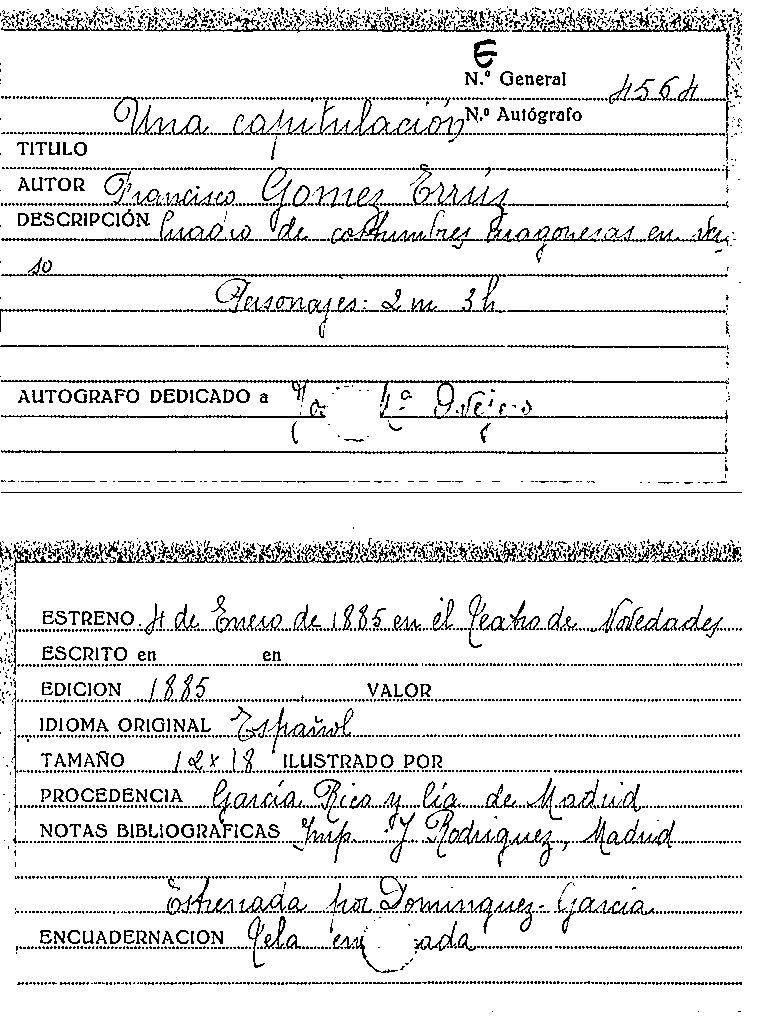 E
N.º General 4564
Una capitulación N.º Autógrafo
TITULO
AUTOR Francisco Gomez Errúz
DESCRIPCIÓN Cuadro de costumbres aragonesas en ver-
so
Personajes: 2 m 3 h
AUTOGRAFO DEDICADO a
ESTRENO 4 de Enero de 1885 en el Teatro de Novedades
ESCRITO en en
EDICION 1885 VALOR
IDIOMA ORIGINAL Español
TAMAÑO 12x18 ILUSTRADO POR
PROCEDENCIA García Rico y Cía de Madrid
NOTAS BIBLIOGRAFICAS Imp. J. Rodriguez, Madrid
Estrenada por Dominguez-Garcia
ENCUADERNACION Tela